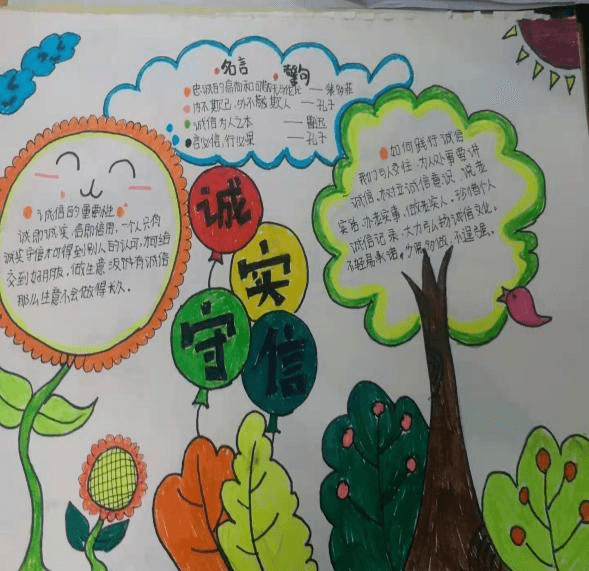 名言 警句
内不欺己,外不欺人 ——孔子
诚信为人之本 ——鲁迅
言必信,行必果 ——孔子
诚
实
守
信
诚信的重要性
诚即诚实,信即信用,一个人只有
诚实守信才可得到别人的认可,才可结
交到好朋友,做生意没有诚信
那么生意不会做得长久。
如何践行诚信
我们与人交往,为人处事要讲
诚信,树立诚信意识,说老
实话,办老实事,做老实人,珍惜个人
诚信记录,大力弘扬诚信文化。
不轻易承诺,少 勿做,不逞强。